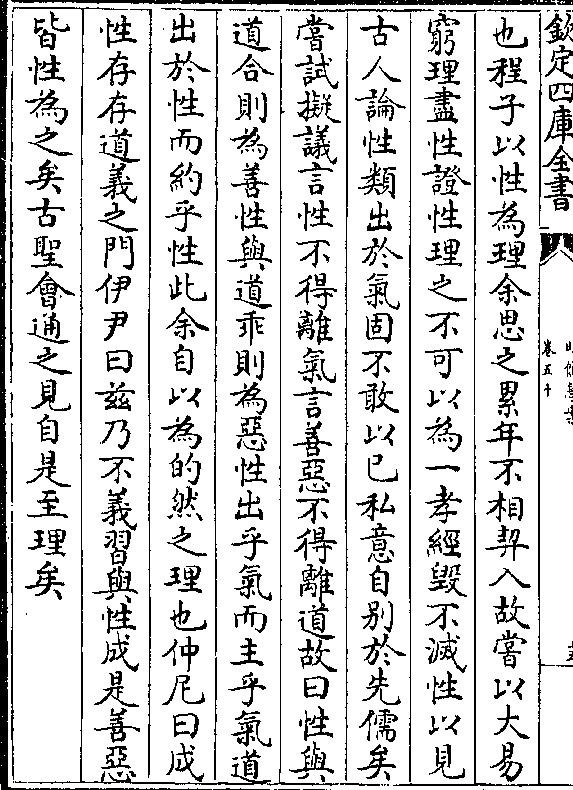 欽定四庫全書
明儒學案
卷五十
也程子以性為理余思之累年不相契入故嘗以大易
窮理盡性證性理之不可以為一孝經毀不滅性以見
古人論性類出於氣固不敢以已私意自別於先儒矣
嘗試擬議言性不得離氣言善惡不得離道故曰性與
道合則為善性與道乖則為惡性出乎氣而主乎氣道
出於性而約乎性此余自以為的然之理也仲尼曰成
性存存道義之門伊尹曰兹乃不義習與性成是善惡
皆性為之矣古聖會通之見自是至理矣